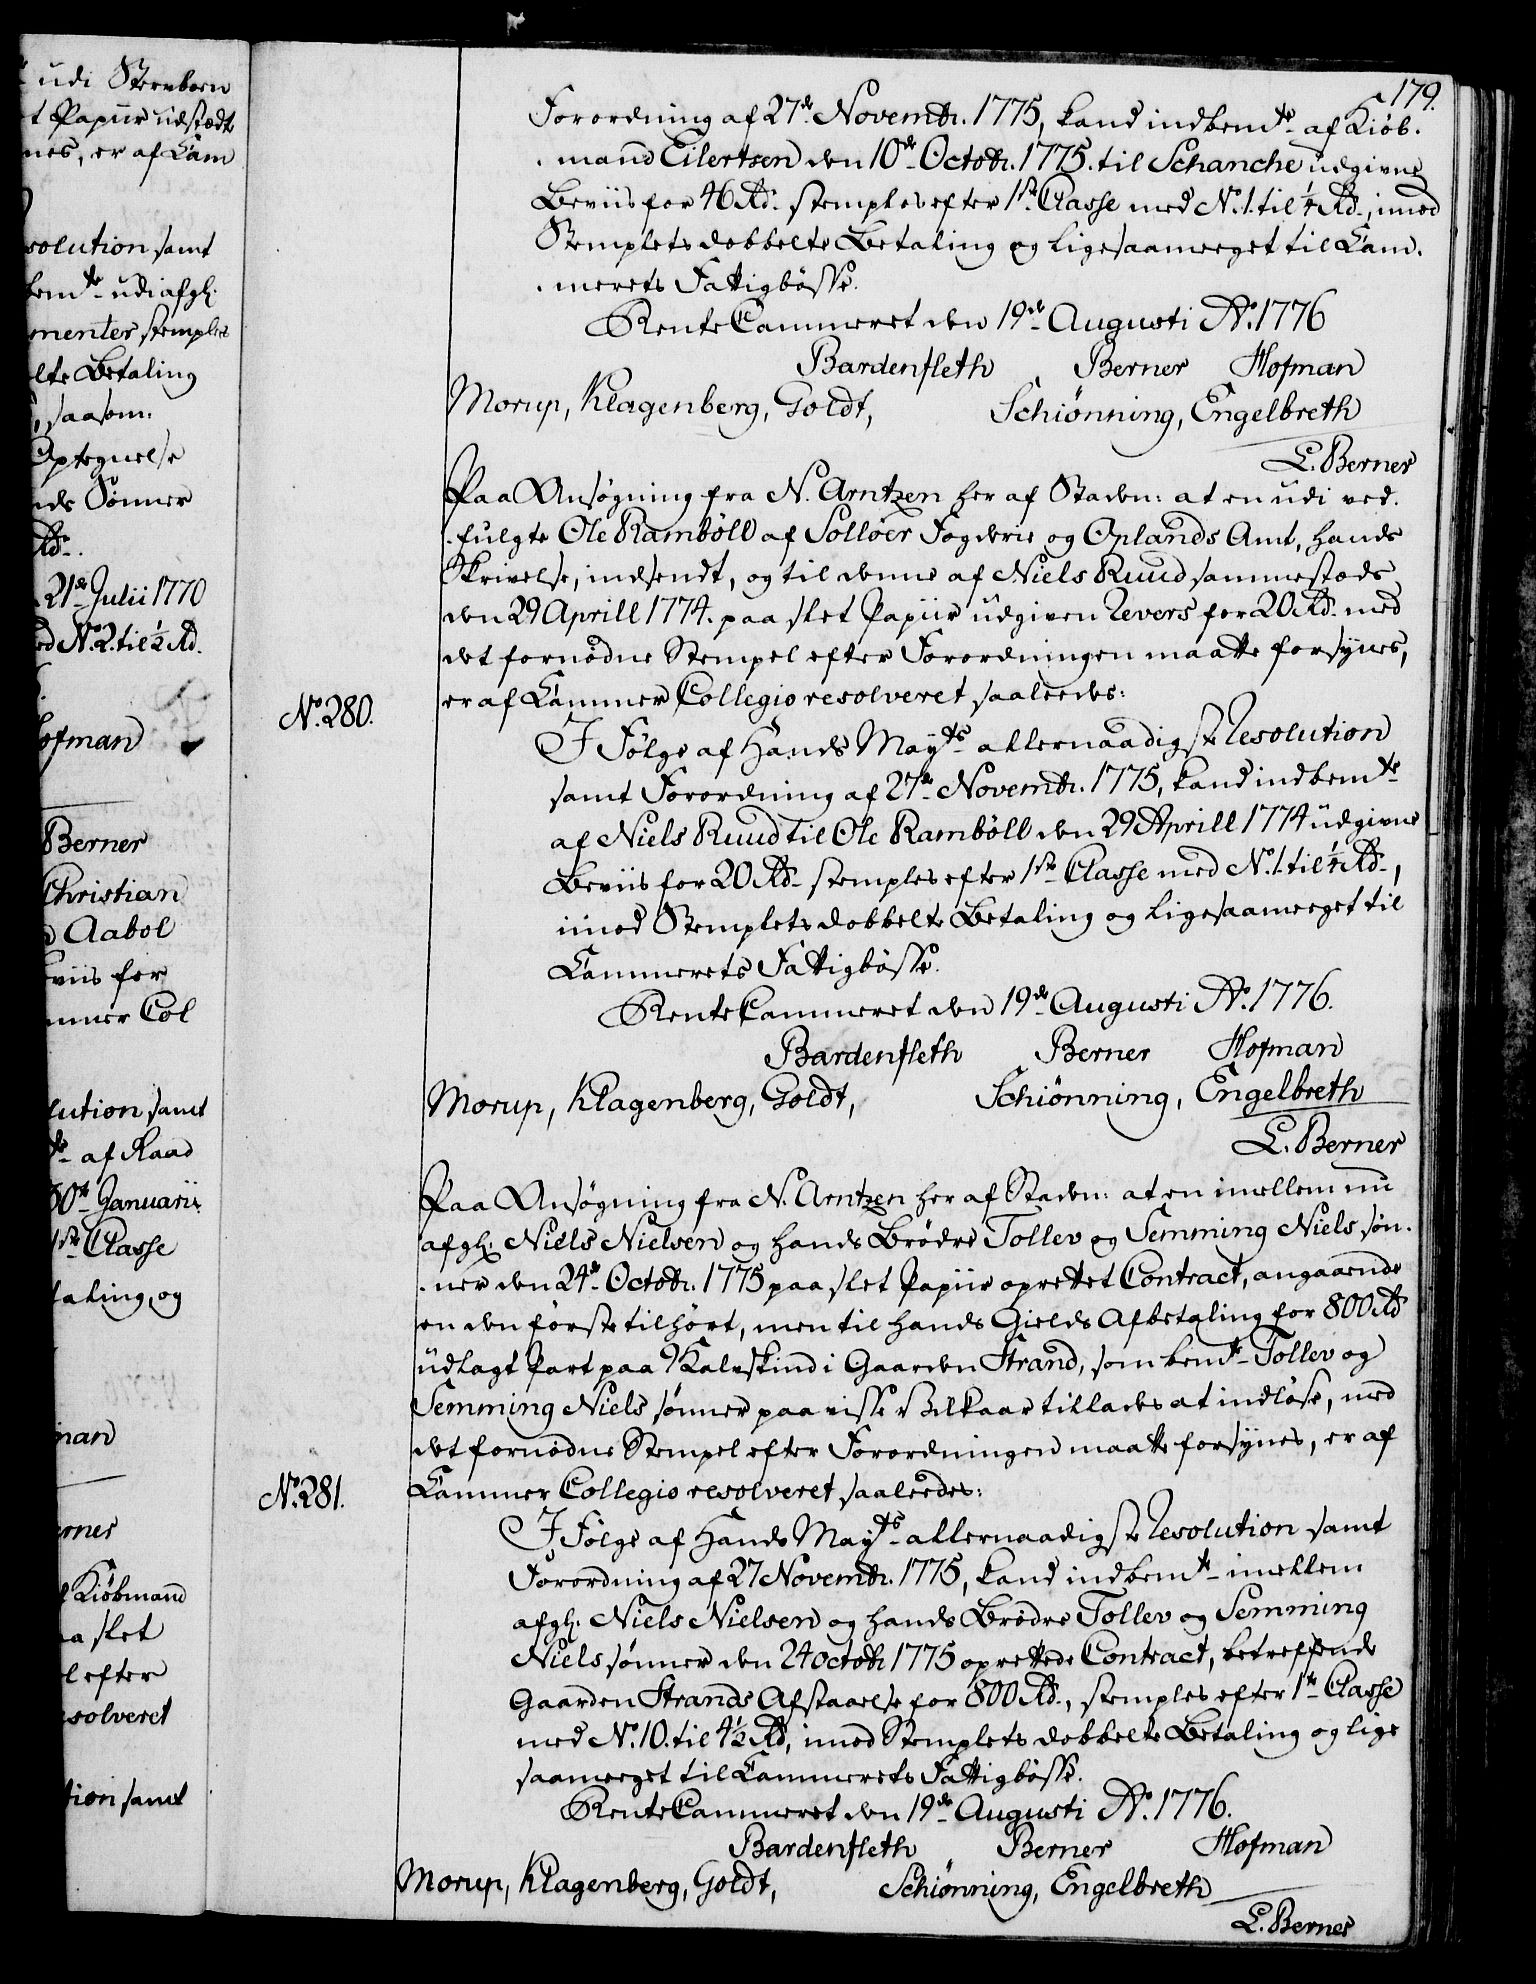 udi Sterbboen
t Papiir udstædt
nes, er af Cam
solution samt
bem.te udi afgl.
menter stemples
elte Betaling
saasom:
Optegnelse
nds Sönner
Rd.
21de Julii 1770
ed No. 2. til ½ Rd.
Hofman
Berner
Christian
Aabol
eviis for
mmer Col
lution samt
af Raad
30te Januarii
1ste Classe
taling, og
man
erner
Kiöbmand
aa slet
l efter
esolveret
tion samt
179.
Forordning af 27de Novembr. 1775, kand indbemte af Kiöb-
mand Eilertsen den 10de Octobr. 1775. til Schanche udgivne
Beviis for 46 Rd. stemples efter 1ste Classe med No. 1. til ¼ Rd., imod
Stemplets dobbelte Betaling og ligesaameeget til Cam-
merets Fattigbösse.
RenteCammeret den 19de Augusti Ao. 1776
Bardenfleth Berner Hofman
Morup, Klagenberg, Goldt, Schiönning, Engelbreth
L. Berner
Paa Ansøgning fra N. Arntzen her af Staden: at en udi ved-
fulgte Ole Ramböll af Sollöer Fogderie og Oplands Amt, hands
Skrivelse, indsendt, og til denne af Niels Ruud sammestæds
den 29 Aprill 1774. paa slet Papiir udgiven Revers for 20 Rd. med
det fornødne Stempel efter Forordningen maatte forsynes,
er af Cammer Collegio resolveret saaleedes:
No. 280.
I Følge af Hands Mayts allernaadigste Resolution
samt Forordning af 27de Novembr. 1775, kand indbemte
af Niels Ruud til Ole Ramböll den 29 Aprill 1774 udgivne
Beviis for 20 Rd. stemples efter 1ste Classe med No. 1. til ¼ Rd.,
imod Stemplets dobbelte Betaling og ligesaameeget til
Cammerets Fattigbösse.
RenteCammeret den 19de Augusti Ao. 1776.
Bardenfleth Berner Hofman
Morup, Klagenberg, Goldt, Schiönning, Engelbreth
L. Berner
Paa Ansøgning fra N. Arntzen her af Staden: at en imellem nu
afgl. Niels Nielsen og hands Brødre Tollev og Semming Niels søn-
ner den 24de Octobr. 1775 paa slet Papiir oprettet Contract, angaaende
en den første tilhört, men til hands Gields Afbetaling for 800 Rd
udlagt Part paa 9 Kalvskind i Gaarden Strand, som bemte Tollev og
Semming Niels sønner paa visse Vilkaar tillades at indløse, med
det fornødne Stempel efter Forordningen maatte forsynes, er af
Cammer Collegio resolveret saaleedes:
No. 281.
I Følge af Hands Mayts allernaadigste Resolution samt
Forordning af 27 Novembr. 1775, kand indbemte imellem
afgl. Niels Nielsen og hands Brødre Tollev og Semming
Niels sønner den 24 octobr 1775 oprettede Contract, betreffende
Gaarden Strands Afstaaelse for 800 Rd., stemples efter 1ste Classe
med No. 10. til 4½ Rd, imod Stemplets dobbelte Betaling og lige
saameeget til Cammerets Fattigbösse.
RenteCammeret den 19de Augusti Ao. 1776.
Bardenfleth Berner Hofman
Morup, Klagenberg, Goldt, Schiönning, Engelbreth
L. Berner